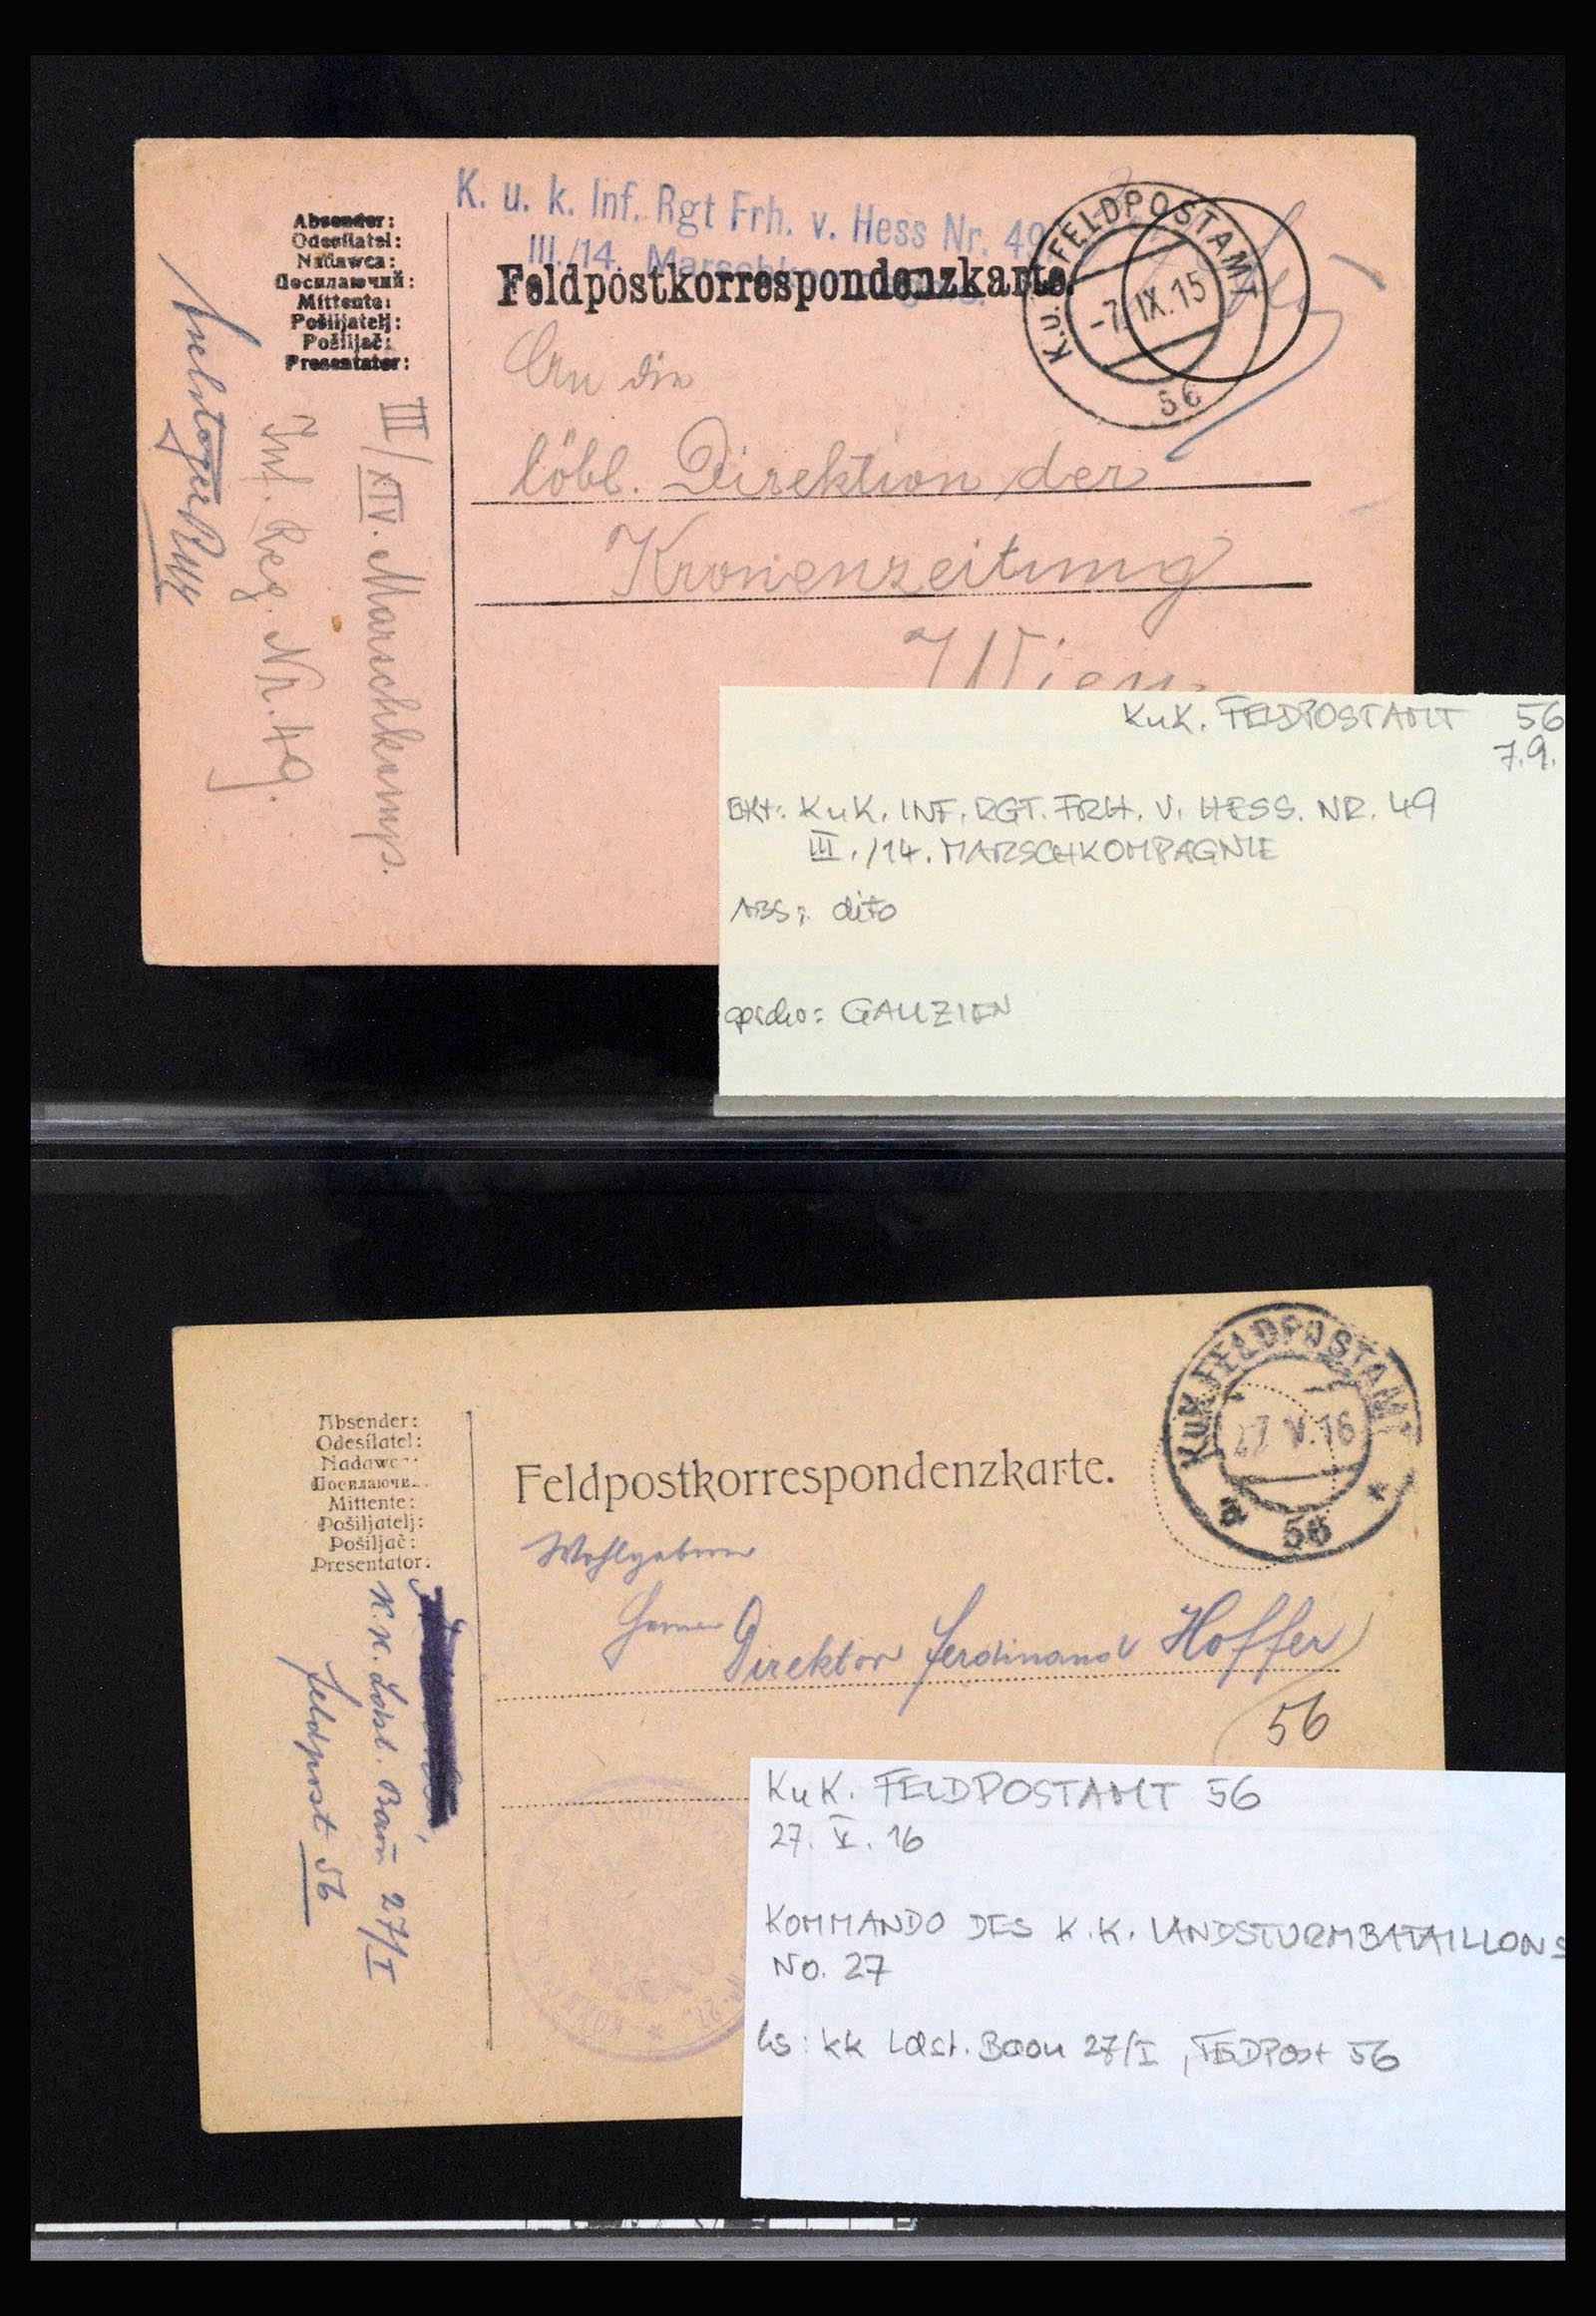 K. u. k. Inf. Rgt Frh. v. Hess Nr. 49
III./14.
Feldpostkorrespondenzkarte.
K.u.K. FELDPOSTAMT
-7. IX. 15
56
Absender:
Odesílatel:
Nadawca:
Посилаючий:
Mittente:
Pošiljatelj:
Pošiljač:
Presentator:
III/XIV. Marschkomp.
Inf. Reg. Nr. 49.
An die
löbl. Direktion der
Kronenzeitung
Wien
KuK. FELDPOSTAMT 56
7.9.
KuK. INF. RGT. FRH. V. HESS. NR. 49
III./14. MARSCHKOMPAGNIE
ABS: dito
GALIZIEN
KuK FELDPOSTAMT
27 V. 16
a 56 *
Absender:
Odesílatel:
Nadawc
Посилаючи
Mittente:
Pošiljatelj:
Pošiljač:
Presentator:
K.K. Ldst. Baon 27/I
Feldpost 56
Feldpostkorrespondenzkarte.
Wohlgeboren
Herrn Direktor Ferdinand Hoffer
56
KuK. FELDPOSTAMT 56
27. V. 16
KOMMANDO DES K.K. LANDSTURMBATAILLONS
NO. 27
hs: kk Ldst. Baon 27/I, FELDPOST 56